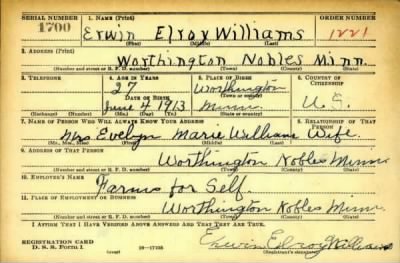 SERIAL NUMBER 1. NAME (Print) ORDER NUMBER
1700 Erwin Elroy Williams 1221
(First) (Middle) (Last)
2. ADDRESS (Print)
Worthington Nobles Minn.
(Number and street or R. F. D. number) (Town) (County) (State)
3. TELEPHONE 4. AGE IN YEARS 5. PLACE OF BIRTH 6. COUNTRY OF CITIZENSHIP
27 Worthington
DATE OF BIRTH (Town or county)
June 4 1913 Minn. U.S.
(Exchange) (Number) (Mo.) (Day) (Yr.) (State or country)
7. NAME OF PERSON WHO WILL ALWAYS KNOW YOUR ADDRESS 8. RELATIONSHIP OF THAT PERSON
Mrs Evelyn Marie Williams Wife.
(Mr., Mrs., Miss) (First) (Middle) (Last)
9. ADDRESS OF THAT PERSON
Worthington Nobles Minn
(Number and street or R. F. D. number) (Town) (County) (State)
10. EMPLOYER'S NAME
Farms for Self.
11. PLACE OF EMPLOYMENT OR BUSINESS
Worthington Nobles Minn.
(Number and street or R. F. D. number) (Town) (County) (State)
I AFFIRM THAT I HAVE VERIFIED ABOVE ANSWERS AND THAT THEY ARE TRUE.
REGISTRATION CARD Erwin Elroy Williams
D. S. S. Form 1 (over) (Registrant's signature)